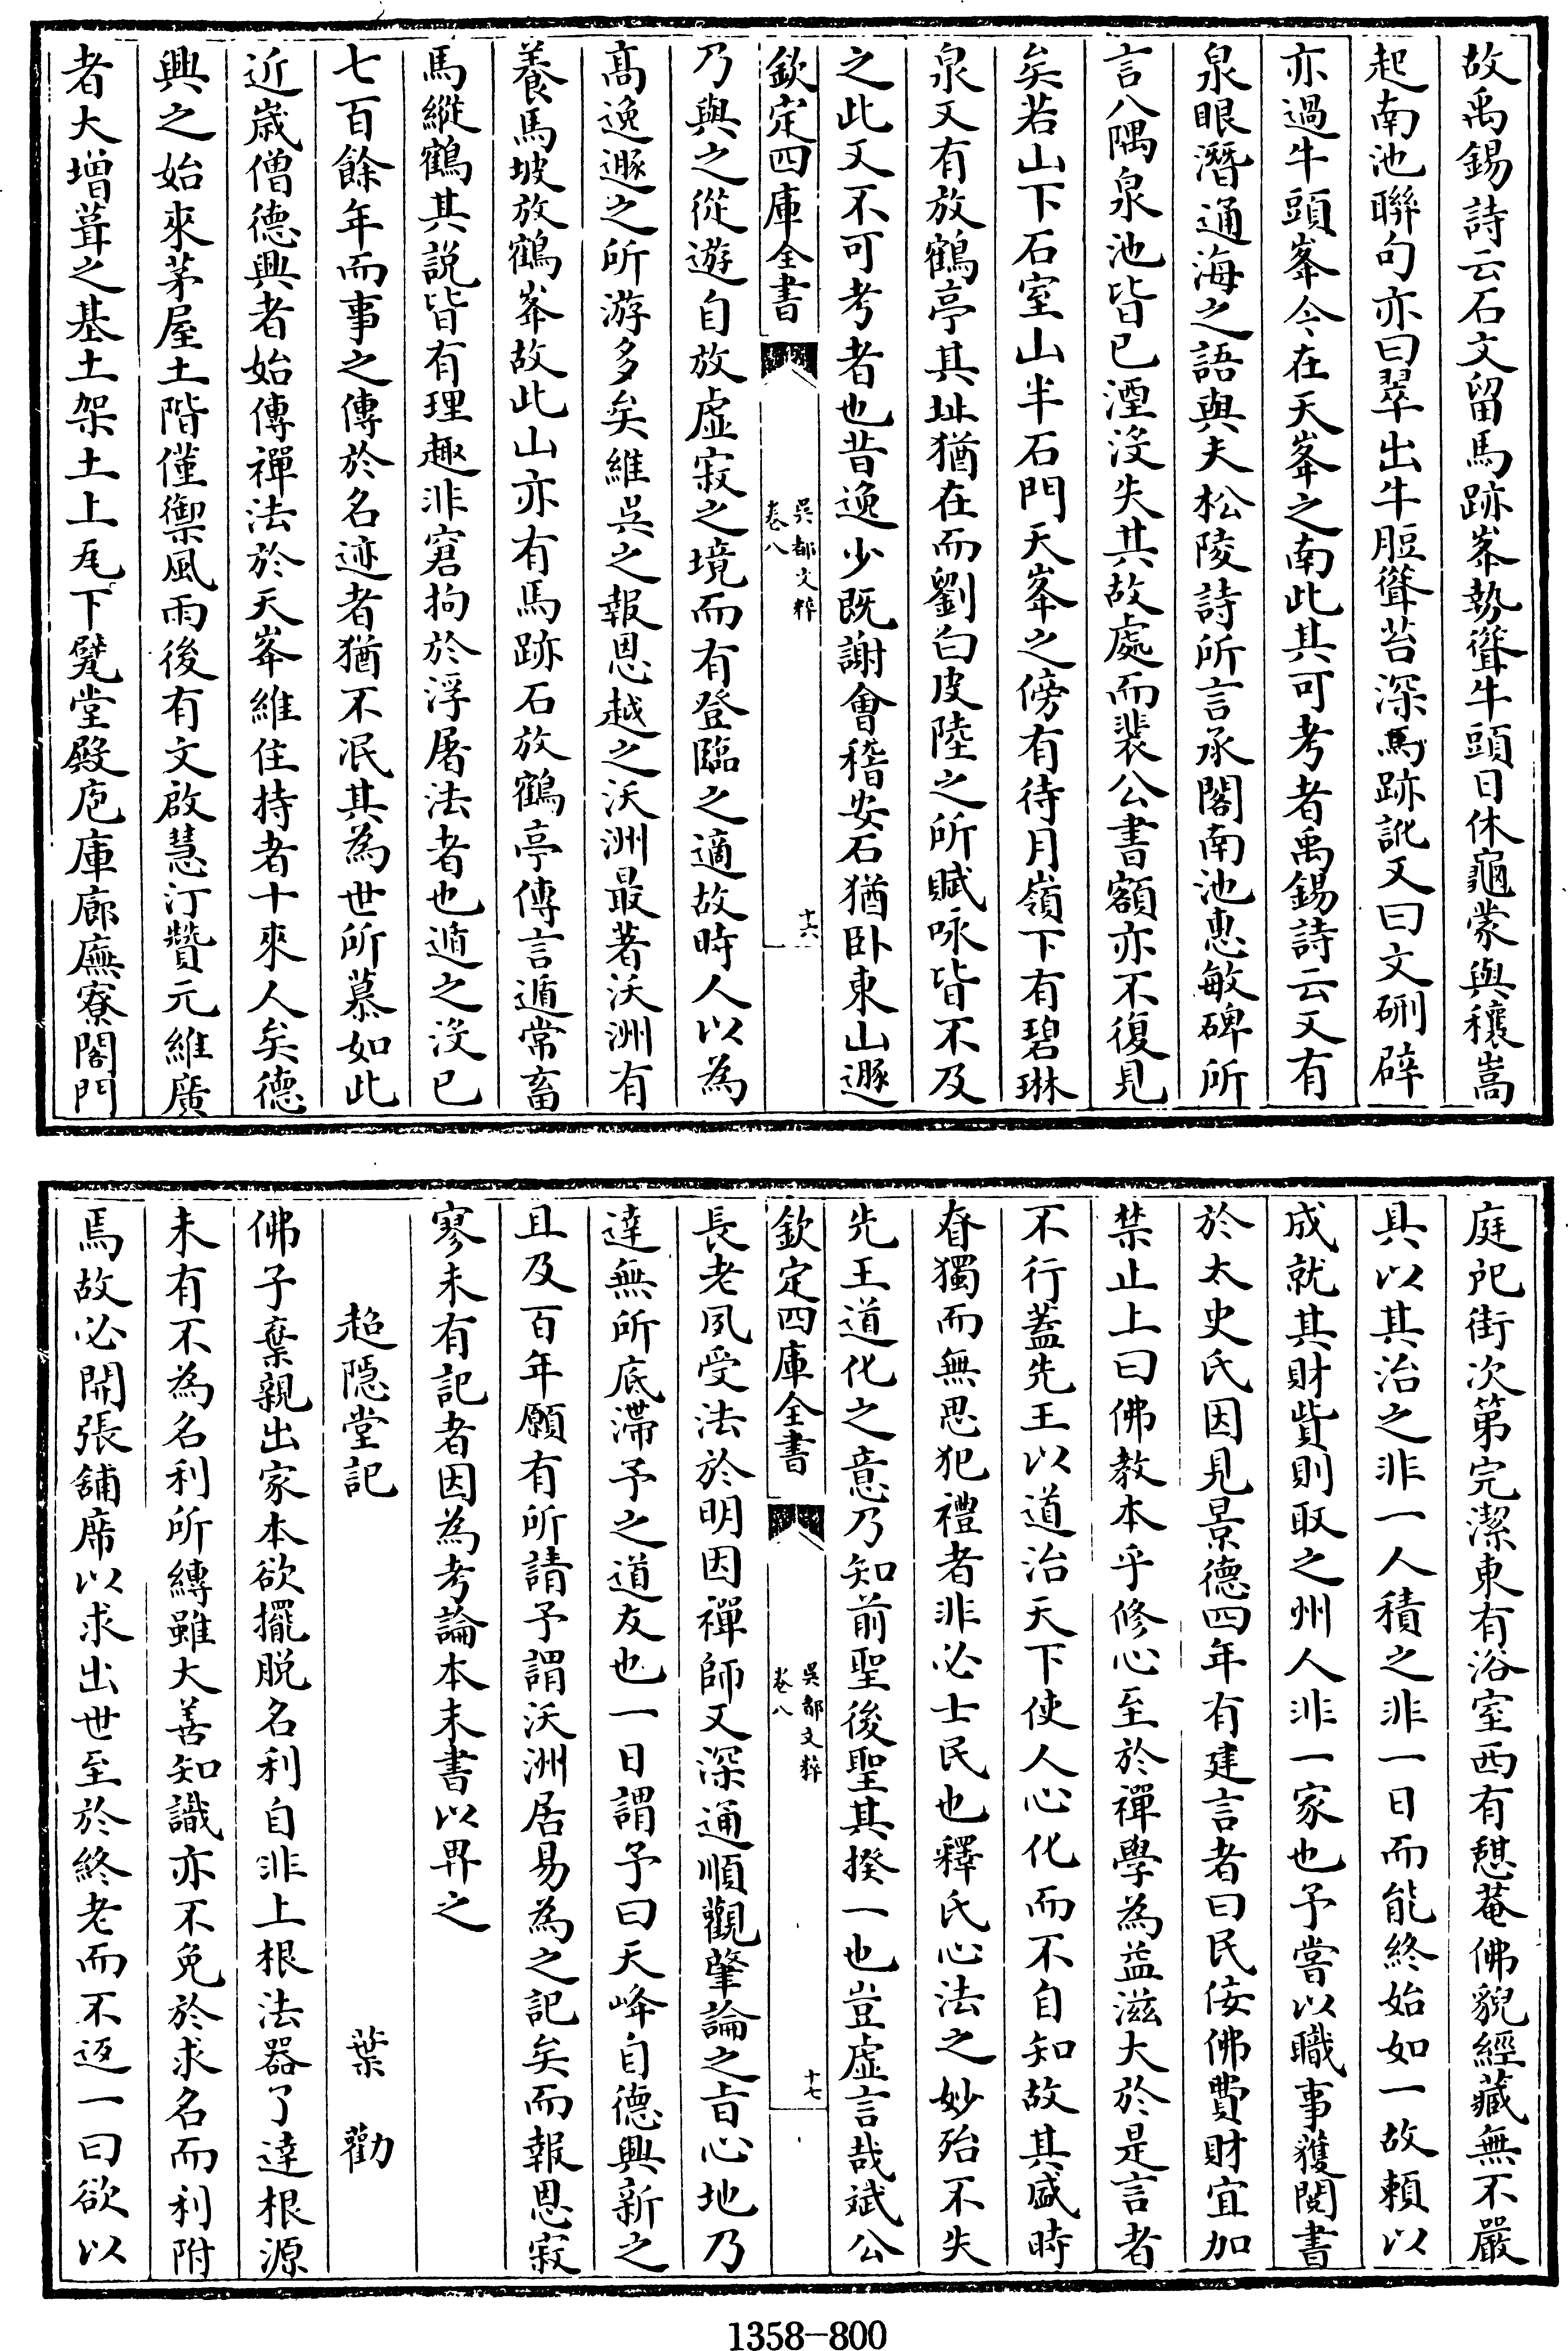 故禹錫詩云石文留馬跡峯勢聳牛頭日休龜蒙與穰嵩
起南池聯句亦曰翠出牛脰聳苔深馬跡訛又曰文硎辟
亦過牛頭峯今在天峯之南此其可考者禹錫詩云又有
泉眼潛通海之語與夫松陵詩所言承閣南池惠敏碑所
言八隅泉池皆已湮没失其故處而裴公書額亦不復見
矣若山下石室山半石門天峯之傍有待月嶺下有碧琳
泉又有放鶴亭其址猶在而劉白皮陸之所賦咏皆不及
之此又不可考者也昔逸少既謝會稽安石猶卧東山遯
欽定四庫全書
吳都文粹
卷八
十六
乃與之從遊自放虛寂之境而有登臨之適故時人以為
髙逸遯之所游多矣維吳之報恩越之沃洲最著沃洲有
養馬坡放鶴峯故此山亦有馬跡石放鶴亭傳言遁常畜
馬縱鶴其説皆有理趣非窘拘於浮屠法者也遁之没已
七百餘年而事之傳於名迹者猶不泯其為世所慕如此
近歲僧德興者始傳禪法於天峯維住持者十來人矣德
興之始來茅屋土階僅禦風雨後有文啟慧汀贊元維廣
者大增葺之基土架土上瓦下甓堂殿庖庫廊廡寮閣門
庭戺街次第完潔東有浴室西有憇菴佛貎經藏無不嚴
具以其治之非一人積之非一日而能終始如一故頼以
成就其財貲則取之州人非一家也予嘗以職事獲閱書
於太史氏因見景德四年有建言者曰民佞佛費財宜加
禁止上曰佛教本乎修心至於禪學為益滋大於是言者
不行蓋先王以道治天下使人心化而不自知故其盛時
眘獨而無思犯禮者非必士民也釋氏心法之妙殆不失
先王道化之意乃知前聖後聖其揆一也豈虛言哉斌公
欽定四庫全書
吳都文粹
卷八
十七
長老夙受法於明因禪師又深通順觀肇論之旨心地乃
達無所底滯予之道友也一日謂予曰天峰自德興新之
且及百年願有所請予謂沃洲居易為之記矣而報恩寂
寥未有記者因為考論本末書以畀之
超隱堂記 葉勸
佛子棄親出家本欲擺脱名利自非上根法器了達根源
未有不為名利所縛雖大善知識亦不免於求名而利附
焉故必開張舖席以求出世至於終老而不返一曰欲以
1358-800